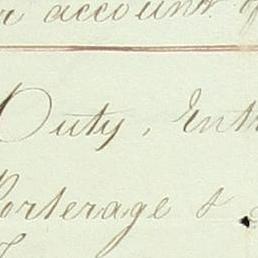 account
Duty, Ent
Porterage &